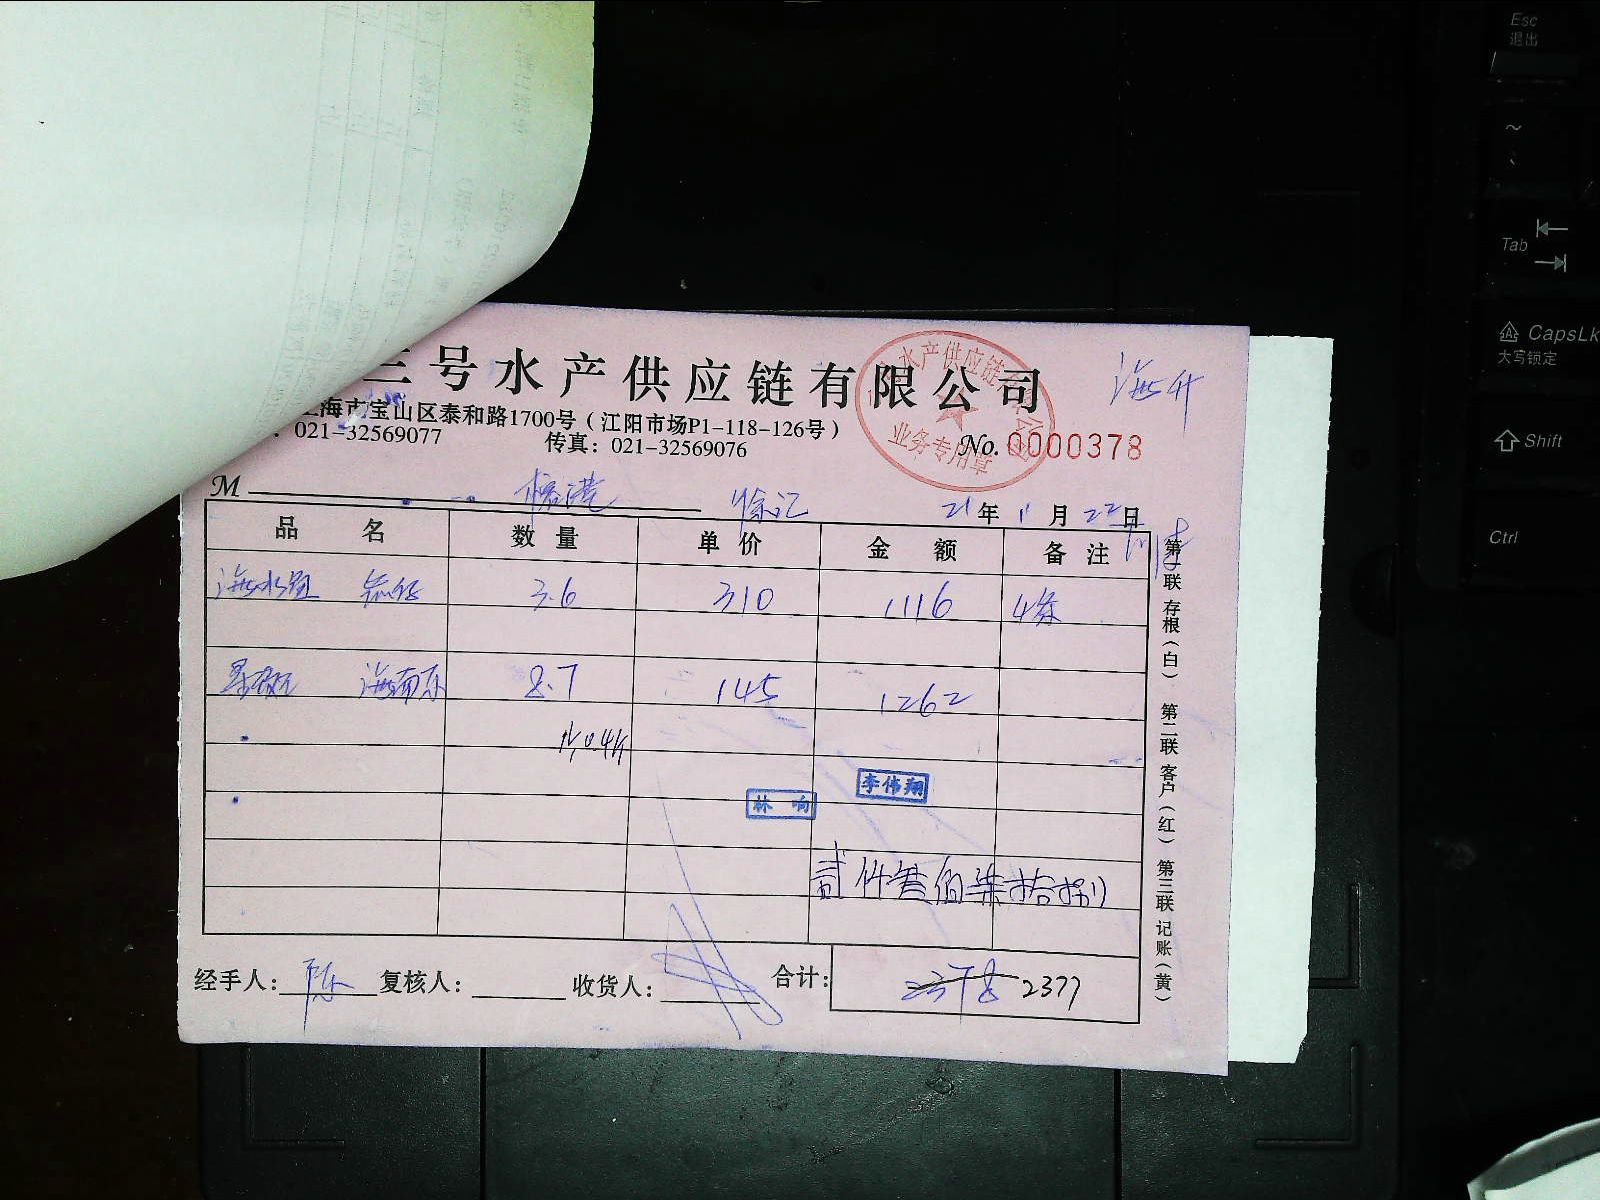 三号水产供应链有限公司
海升
上海市宝山区泰和路1700号(江阳市场P1-118-126号)
: 021-32569077 传真: 021-32569076
水产供应链有限公司
业务专用章
No. 0000378
M 徐记 21年 11月 22日
品名 数量 单价 金额 备注
3.6 310 1116 4条
海南 8.7 145 1262
李伟翔
林响
贰仟叁佰柒拾捌
经手人: 陈 复核人: 收货人: 合计: 2378 2377
第一联 存根(白) 第二联 客户(红) 第三联 记账(黄)
Esc
退出
~
Tab
CapsLk
大写锁定
Shift
Ctrl